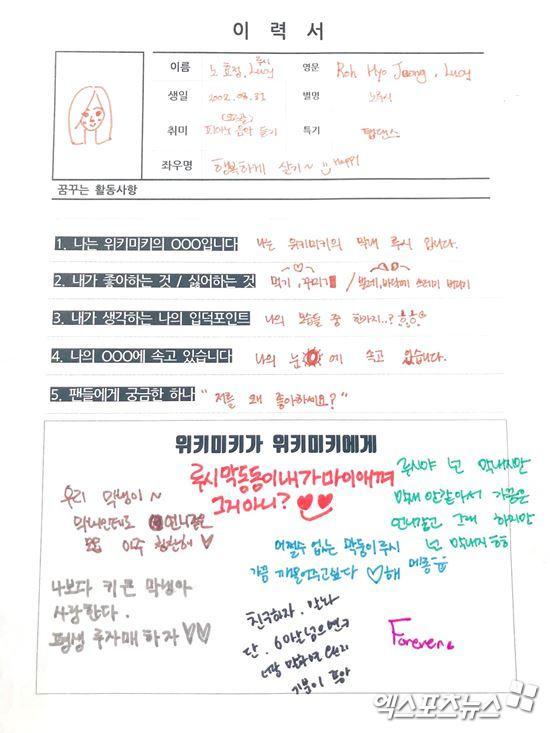 이 력 서
이름 노효정, Lucy 루시 영문 Roh Hyo Jeong, Lucy
생일 2002.08.31 별명 노루시
취미 피아노 음악 듣기 특기 탭댄스
좌우명 행복하게 살기~ Happy
꿈꾸는 활동사항
1. 나는 위키미키의 OOO입니다 나는 위키미키의 막내 루시 입니다.
2. 내가 좋아하는 것 / 싫어하는 것 먹기, 꾸미기 / 벌레, 바닥에
3. 내가 생각하는 나의 입덕포인트 나의 중 한가지..?
4. 나의 OOO에 속고 있습니다 나의 눈 에 속고 있습니다.
5. 팬들에게 궁금한 하나 "저를 왜 좋아하세요?"
위키미키가 위키미키에게
루시막둥둥이내가마이애껴
그거아니?
루시야 넌 막내지만
막내 안같아서 가끔은
언니같고 그래 하지만
넌 막내지 ㅎㅎ
우리 막냉이~
막내인데도 언니같은
아주
어쩔수 없는 막둥이 루시
가끔 깨물어주고싶다 ♡해
나보다 키큰 막냉아
사랑한다.
평생 루자매 하자♡♡
친구하자.
단, 6아
기분이
Forever
엑스포츠뉴스